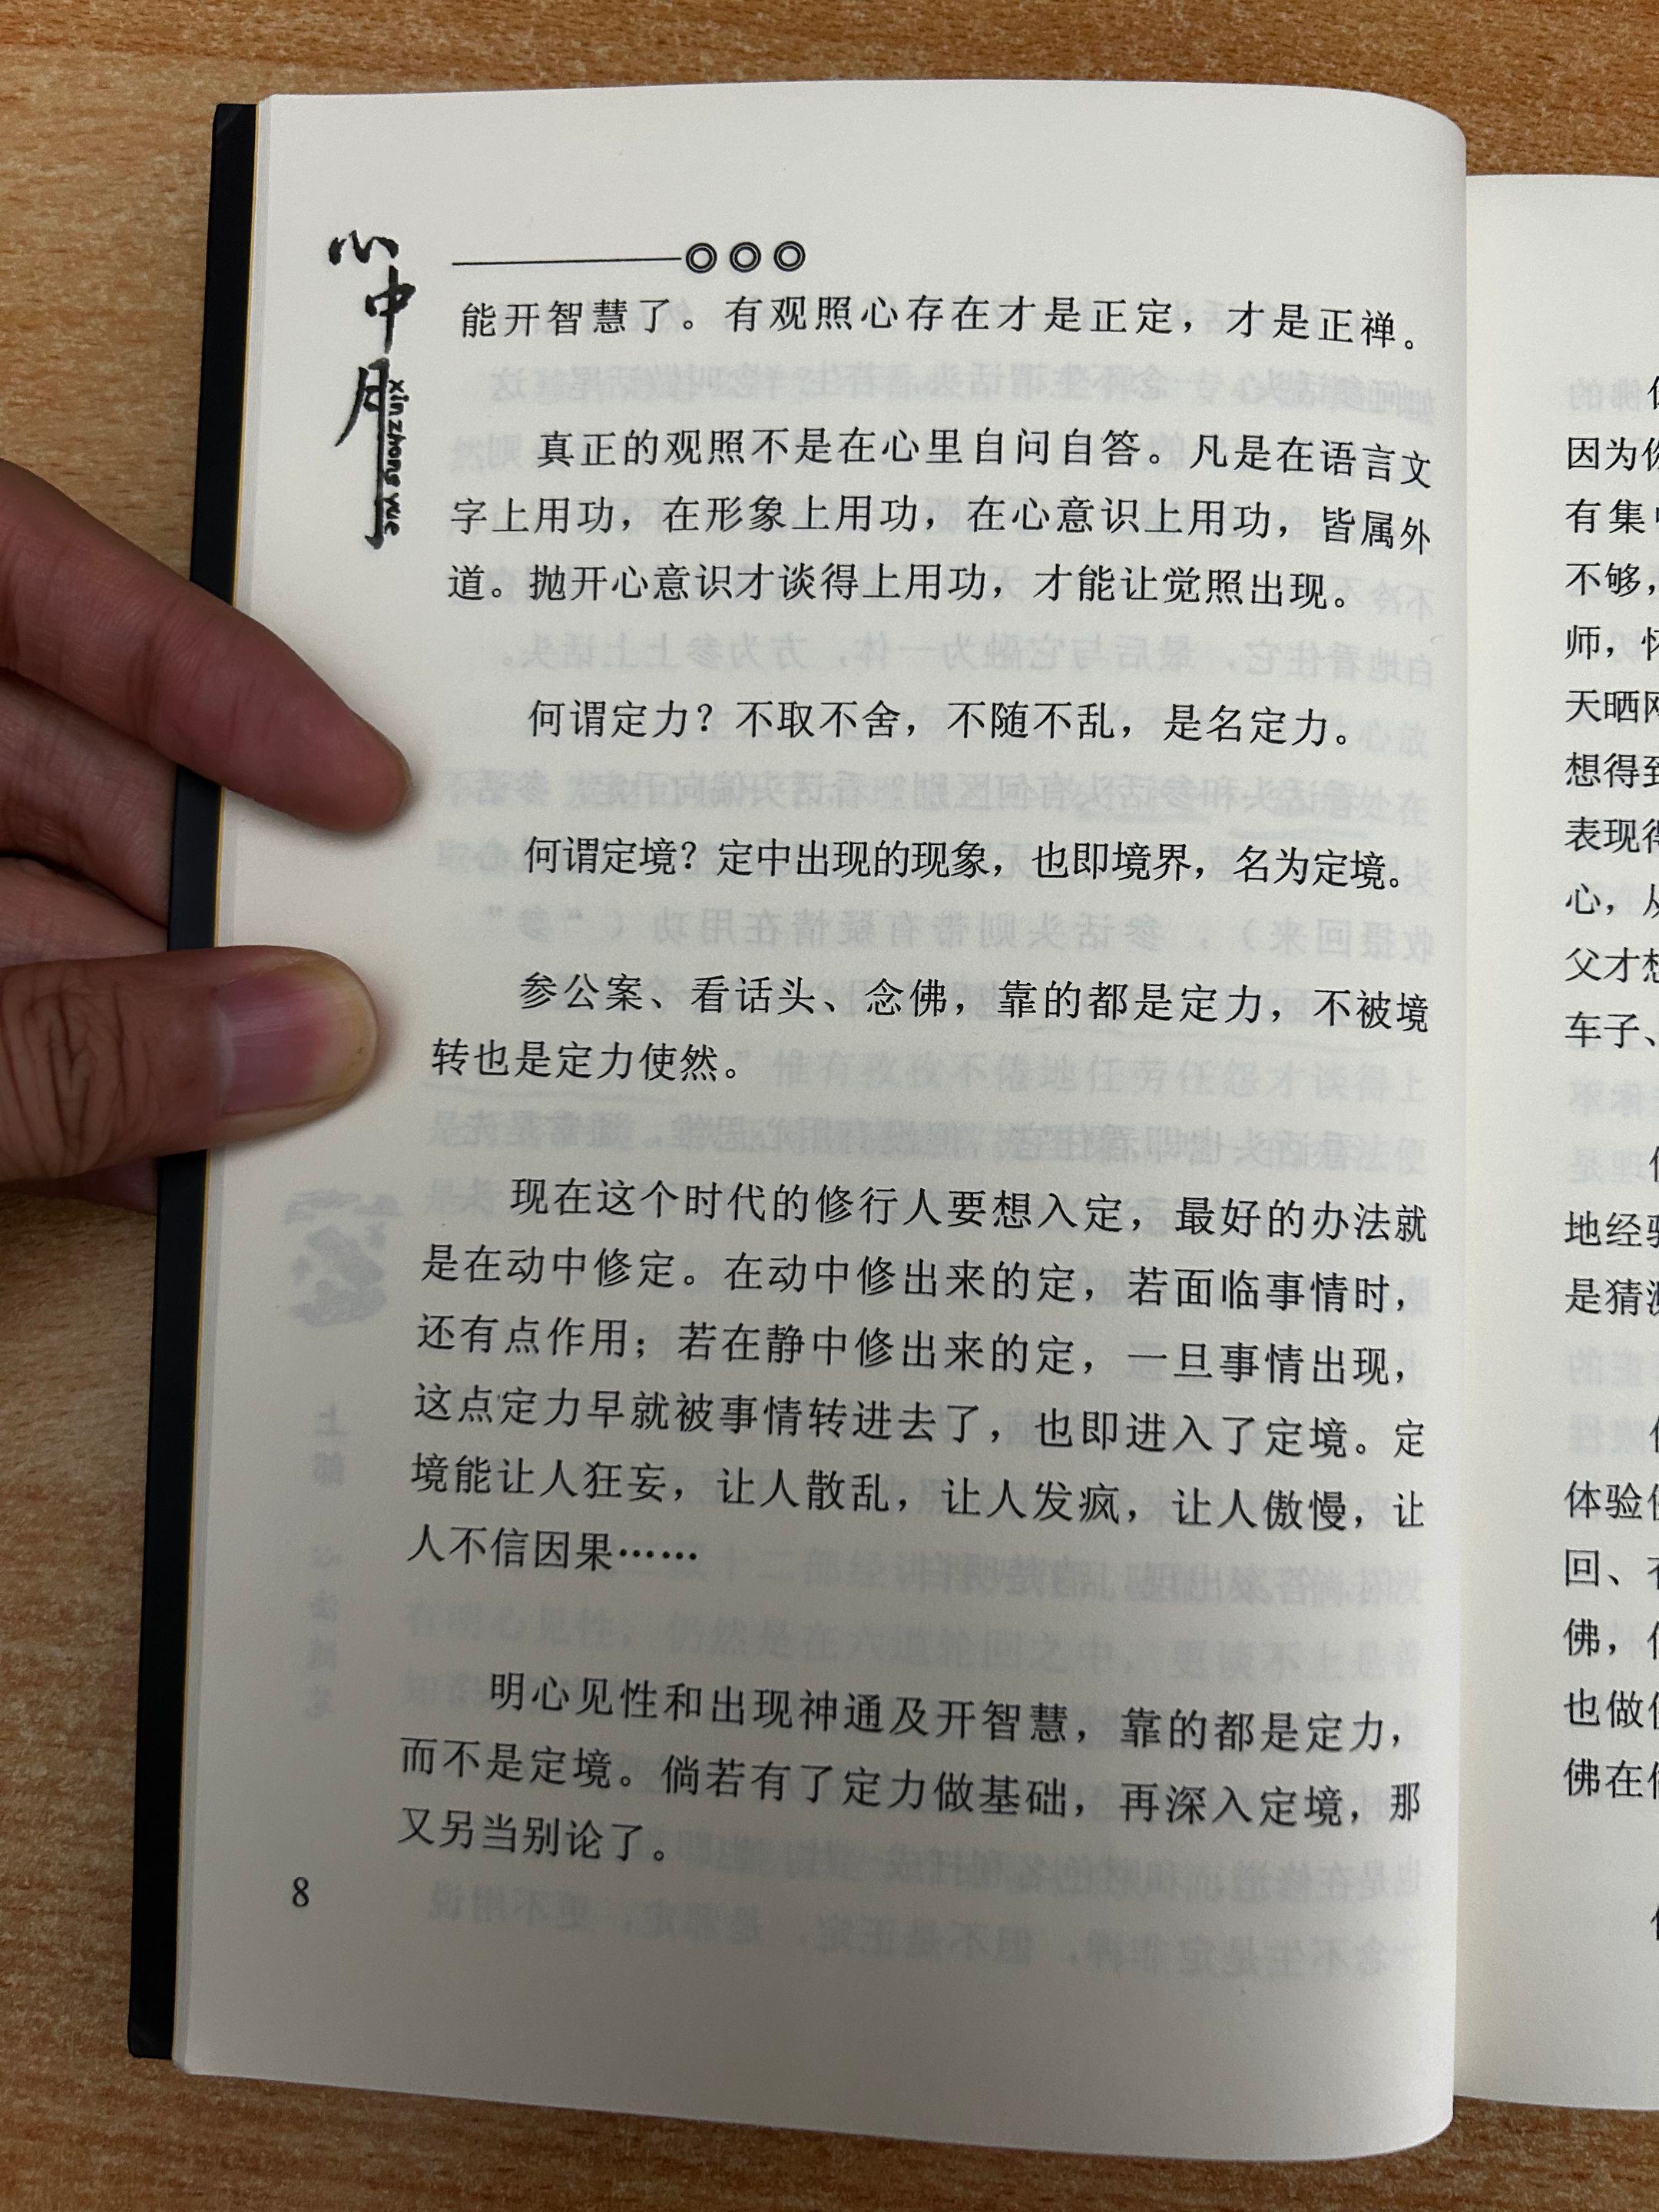 心中月
xin zhong yue
能开智慧了。有观照心存在才是正定，才是正禅。
真正的观照不是在心里自问自答。凡是在语言文
字上用功，在形象上用功，在心意识上用功，皆属外
道。抛开心意识才谈得上用功，才能让觉照出现。
何谓定力？不取不舍，不随不乱，是名定力。
何谓定境？定中出现的现象，也即境界，名为定境。
参公案、看话头、念佛，靠的都是定力，不被境
转也是定力使然。
现在这个时代的修行人要想入定，最好的办法就
是在动中修定。在动中修出来的定，若面临事情时，
还有点作用；若在静中修出来的定，一旦事情出现，
这点定力早就被事情转进去了，也即进入了定境。定
境能让人狂妄，让人散乱，让人发疯，让人傲慢，让
人不信因果……
明心见性和出现神通及开智慧，靠的都是定力，
而不是定境。倘若有了定力做基础，再深入定境，那
又另当别论了。
8
因为
有集
不够，
师，
天晒
想得
表现
心，
父才
车子、
地经
是猜
体验
回、
佛，
也做
佛在